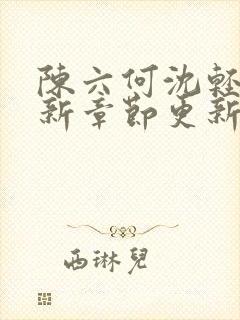 陳六何沈輕
新章節更新
西琳兒